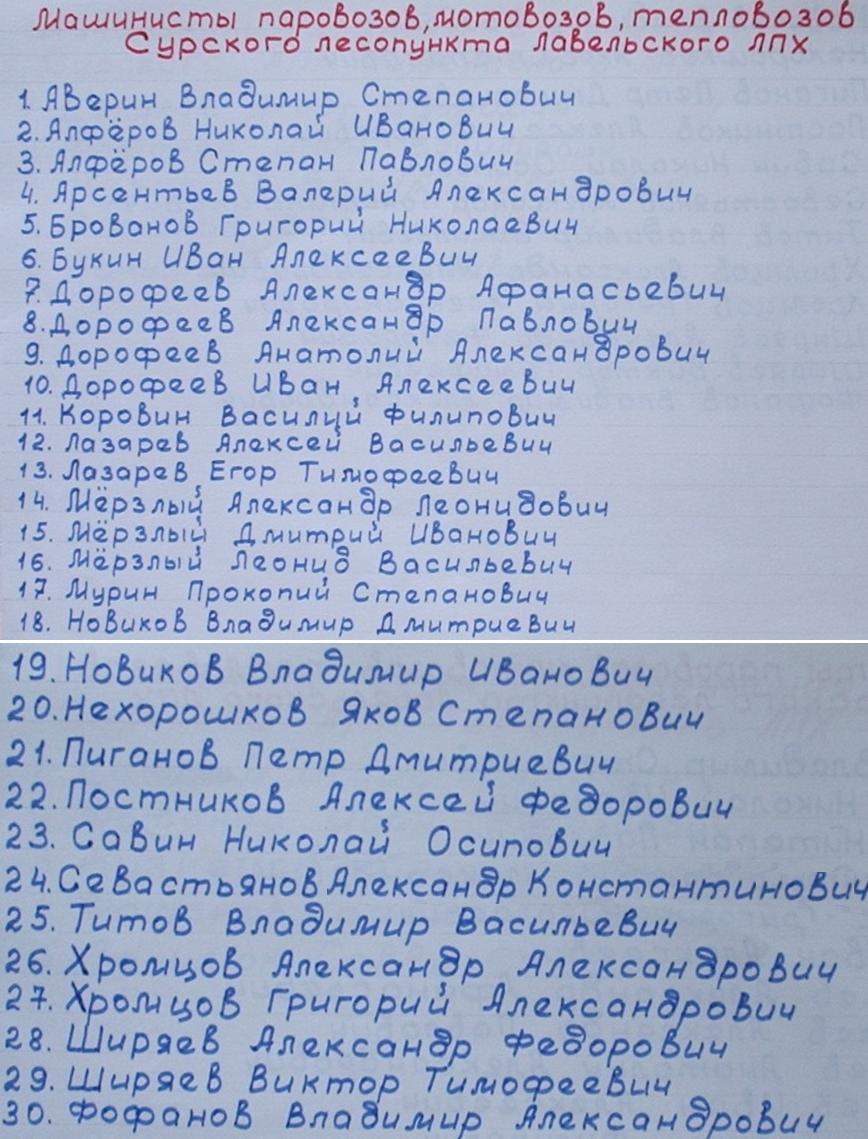 Машинисты паровозов, мотовозов, тепловозов
Сурского лесопункта Лавельского ЛПХ
1. Аверин Владимир Степанович
2. Алфёров Николай Иванович
3. Алфёров Степан Павлович
4. Арсентьев Валерий Александрович
5. Брованов Григорий Николаевич
6. Букин Иван Алексеевич
7. Дорофеев Александр Афанасьевич
8. Дорофеев Александр Павлович
9. Дорофеев Анатолий Александрович
10. Дорофеев Иван Алексеевич
11. Коровин Василий Филипович
12. Лазарев Алексей Васильевич
13. Лазарев Егор Тимофеевич
14. Мёрзлый Александр Леонидович
15. Мёрзлый Дмитрий Иванович
16. Мёрзлый Леонид Васильевич
17. Мурин Прокопий Степанович
18. Новиков Владимир Дмитриевич
19. Новиков Владимир Иванович
20. Нехорошков Яков Степанович
21. Пиганов Петр Дмитриевич
22. Постников Алексей Федорович
23. Савин Николай Осипович
24. Севастьянов Александр Константинович
25. Титов Владимир Васильевич
26. Хромцов Александр Александрович
27. Хромцов Григорий Александрович
28. Ширяев Александр Федорович
29. Ширяев Виктор Тимофеевич
30. Фофанов Владимир Александрович